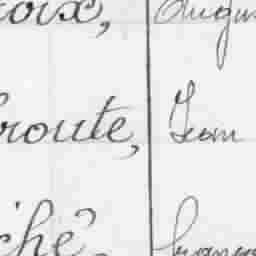 roix, Augus
route, Jean
ché,